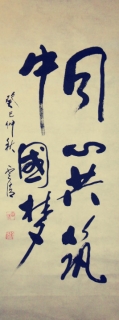 同心共筑
中國梦
癸巳仲秋